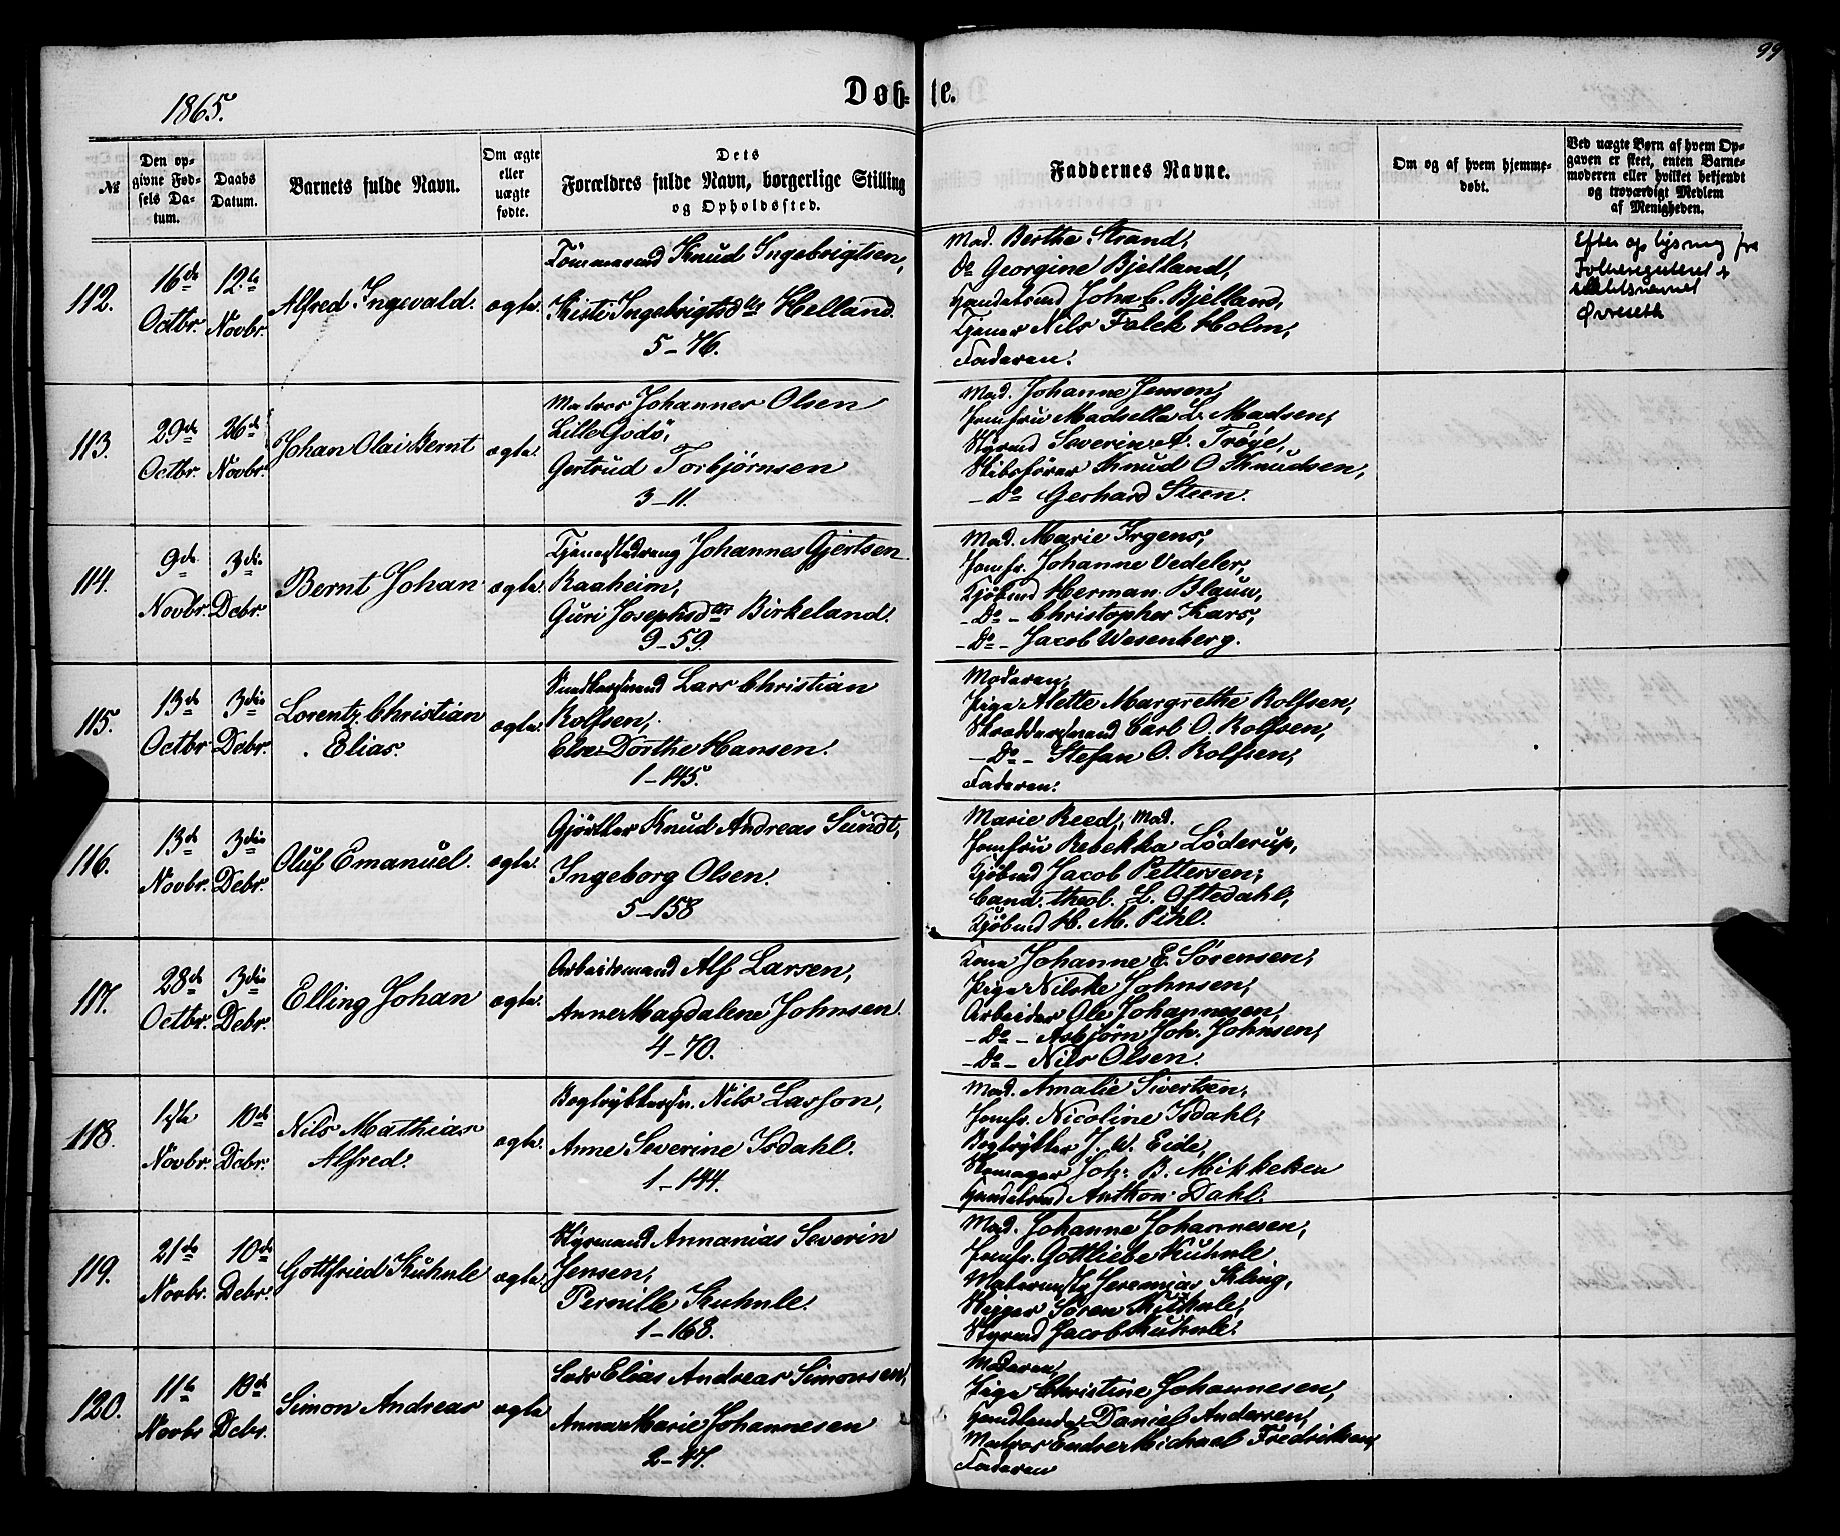 99
1865.
Døb-te.
№
Den opgivne Fødsels Datum.
Daabs Datum.
Barnets fulde Navn.
Om ægte eller uægte fødte.
Dets Forældres fulde Navn, borgerlige Stilling og Opholdssted.
Faddernes Navne.
Om og af hvem hjemmedøbt.
Ved uægte Børn af hvem Opgaven er skeet, enten Barnemoderen eller hvilket bekjendt og troværdigt Medlem af Menigheden.
112.
16de Octbr.
12te Novbr.
Alfred Ingevald.
ægte.
Tømmermd Knud Ingebrigtsen,
Kisti Ingebrigtsdtr Helland.
5-76.
Mad. Berthe Strand,
Do Georgine Bjelland,
Handelsmd Johs C. Bjelland,
Tjener Nils Falck Holm,
Faderen.
Efter oplysning fra
Folkeregisteret er
slektsnavnet
Øvreseth
113.
29de Octbr.
26de Novbr.
Johan Olai Bernt
ægte.
Matros Johannes Olsen
Lille Godö,
Gertrud Torbjørnsen
3-11.
Mad. Johanne Jensen,
Jomfru Madsella L. Madsen,
Styrmd Severin A. Trøye,
Skibsfører Knud O Knudsen,
-Do Gerhard Steen.
114.
9de Novbr.
3die Debr.
Bernt Johan
ægte.
Tjenestedreng Johannes Gjertsen
Raaheim,
Guri Josephsdtr Birkeland.
9-59.
Mad. Marie Irgens,
Jomfr. Johanne Vedeler,
Kjøbmd Herman Blauw,
-Do- Christopher Kars,
-Do- Jacob Wesenberg.
115.
13de Octbr
3die Debr.
Lorentz Christian
Elias.
ægte.
Lars Christian
Rolfsen,
Else Dorthe Hansen.
1-145.
Moderen,
Pige Alette Margrethe Rolfsen,
Skræddersvend Carl O. Rolfsen,
-Do- Stefan O. Rolfsen,
Faderen.
116.
13de Novbr.
3die Debr.
Oluf Emanuel.
ægte.
Gjørtler Knud Andreas Sundt,
Ingeborg Olsen.
5-158
Marie Reed, Mad.
Jomfru Rebekka Löderup,
Kjøbmd Jacob Pettersen,
Cand. theol. L. Oftedahl,
Kjøbmd H. M. Pihl.
117.
28de Octbr.
3die Debr.
Elling Johan
ægte.
Arbeidsmand Alf Larsen,
Anne Magdalene Johnsen.
4-70.
Kone Johanne E. Sørensen,
Pige Nilske Johnsen,
Arbeider Ole Johannesen,
-Do- Asbjørn Joh. Johnsen,
-Do- Nils Olsen.
118.
1ste Novbr.
10de Debr.
Nils Mathias
Alfred.
ægte.
Bogtrykkersv. Nils Larson,
Anne Severine Isdahl.
1-144.
Mad. Amalie Sivertsen,
Jomfr. Nicoline Isdahl,
Bogtrykker J. W. Eide,
Skomager Joh: B. Mikkelsen
Handelsmd Anthon Dahl.
119.
21de Novbr.
10de Debr.
Gottfried Kuhnle
ægte.
Styrmand Annanias Severin
Jensen,
Pernille Kuhnle.
1-168.
Mad. Johanne Johannesen,
Jomfr. Gottliebe Kuhnle
Jeremias Kling,
Skipper Søren Kuhnle,
Styrmd Jacob Kuhnle.
120.
11te Novbr
10de Debr.
Simon Andreas
ægte
Elias Andreas Simonsen,
Anna Marie Johannesen
2-47.
Moderen,
Pige Christine Johannesen,
Handlende Daniel Andersen,
Matros Endre Michael Fredriksen,
Faderen